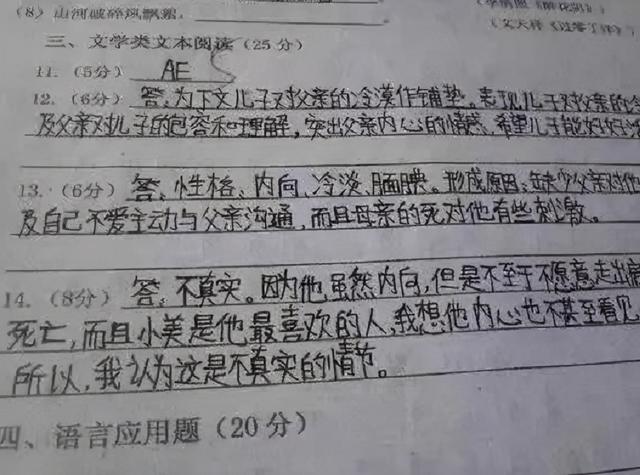 (8) 山河破碎风飘絮，
三、文学类文本阅读（25分）
11.（5分） AE
12.（6分） 答：为下文儿子对父亲的冷漠作铺垫。表现儿子对父亲的
及父亲对儿子的包容和理解，突出父亲内心的情感，希望儿子能好好
13.（6分） 答：性格：内向、冷淡、腼腆。形成原因：缺少父亲对他
及自己不爱主动与父亲沟通，而且母亲的死对他有些刺激。
14.（8分） 答：不真实。因为他虽然内向，但是不至于不愿意走出
死亡，而且小美是他最喜欢的人，我想他内心也不甚至看见
所以，我认为这是不真实的情节。
四、语言应用题（20分）